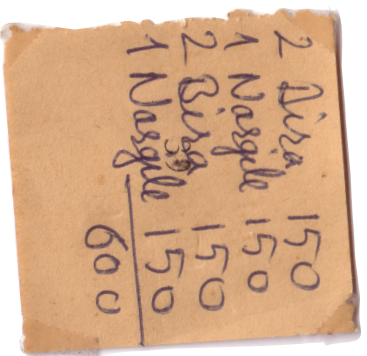 2 Bira 150
1 Nargile 150
2 Bira 150
1 Nargile 150
600